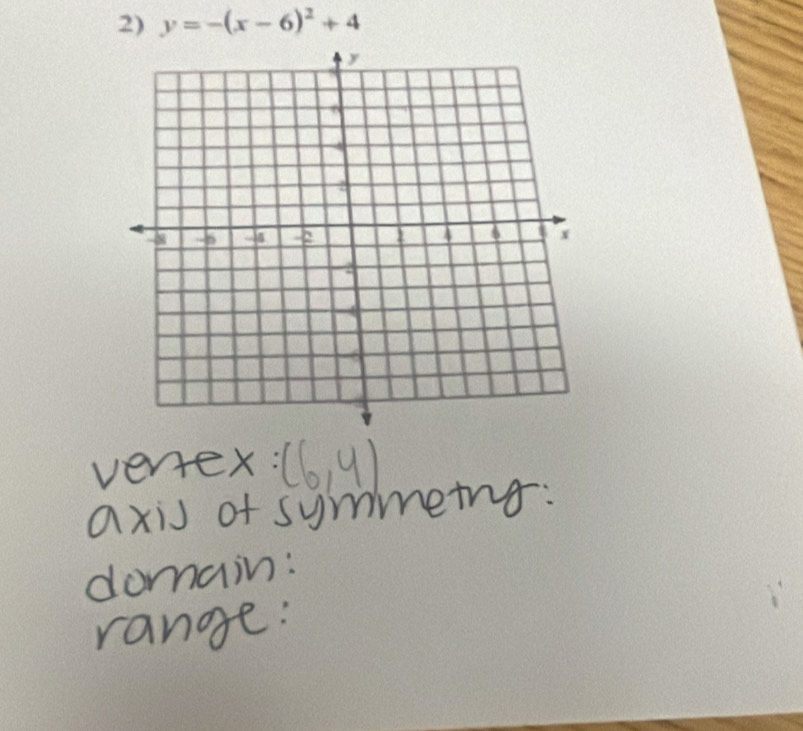 2) y = -(x - 6)² + 4
y
-8 -6 -4 -2 2 4 6 8 x
vertex: (6,4)
axis of symmetry:
domain:
range: